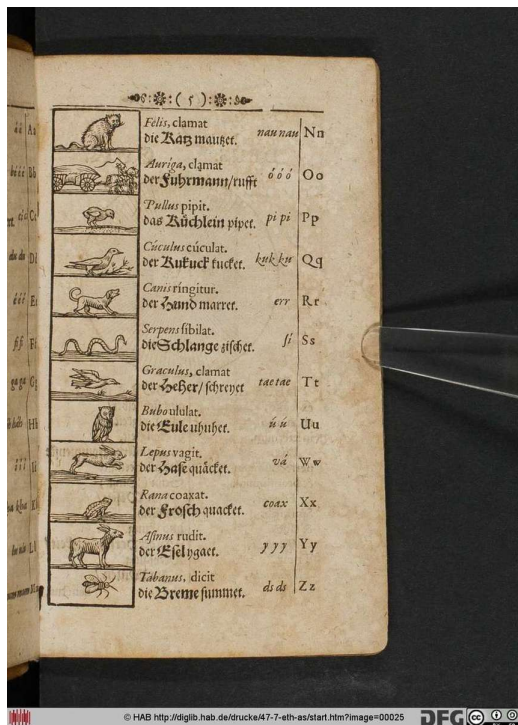 ( 5 )
Felis, clamat
die Katz mautzet. nau nau Nn
Auriga, clamat
der Fuhrmann/rufft ó ó ó Oo
Pullus pipit.
das Küchlein pipet. pi pi Pp
Cúculus cúculat.
der Kukuck kucket. kuk ku Qq
Canis ringitur.
der Hund marret. err Rr
Serpens sibilat.
die Schlange zischet. si Ss
Graculus, clamat
der Heher/ schreyet tae tae Tt
Bubo ululat.
die Eule uhuhet. ú ú Uu
Lepus vagit.
der Hase quäcket. vá Ww
Rana coaxat.
der Frosch quacket. coax Xx
Asinus rudit.
der Esel ygaet. y y y Yy
Tabanus, dicit
die Breme summet. ds ds Zz
Aa
Bb
du du
ga ga
© HAB http://diglib.hab.de/drucke/47-7-eth-as/start.htm?image=00025
DFG